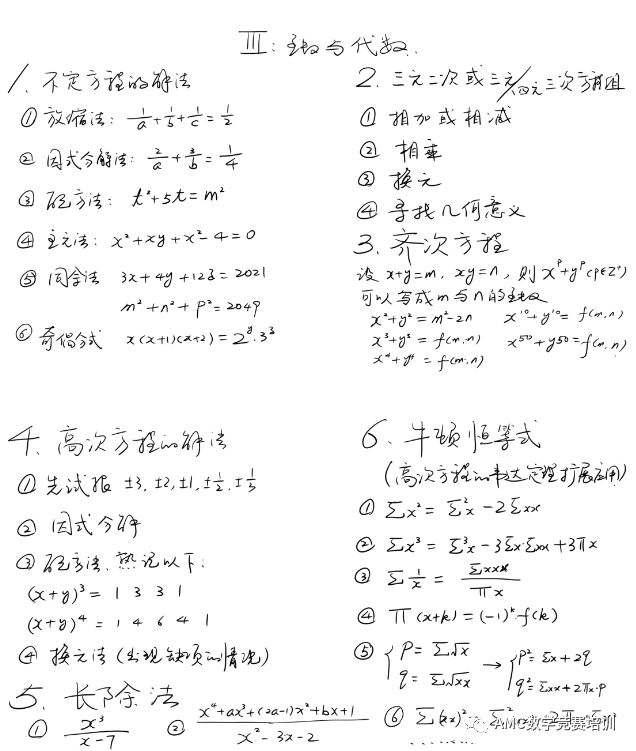 III：函数与代数.
1、不定方程的解法
① 放缩法：1/a + 1/b + 1/c = 1/2
② 因式分解法：2/a + 3/b = 1/4
③ 配方法：t²+5t=m²
④ 主元法：x²+xy+x²-4=0
⑤ 同余法 3x+4y+123=2021
m²+n²+p²=2049
⑥ 奇偶分式 x(x+1)(x+2)=2^y·3^z
2. 三元二次或三元/四元三次方程组
① 相加或相减
② 相乘
③ 换元
④ 寻找几何意义
3. 齐次方程
设x+y=m，xy=n，则x^p+y^p(p∈Z⁺)
可以写成m与n的函数
x²+y²=m²-2n x¹⁰+y¹⁰=f(m,n)
x³+y³=f(m,n) x⁵⁰+y50=f(m,n)
x⁴+y⁴=f(m,n)
4. 高次方程的解法
① 先试根 ±3, ±2, ±1, ±1/2, ±1/3
② 因式分解
③ 配方法、熟记以下：
(x+y)³=1 3 3 1
(x+y)⁴=1 4 6 4 1
④ 换元法(出现缺项的情况)
5. 长除法
① x³/(x-7) ② (x⁴+ax³+(2a-1)x²+bx+1)/(x²-3x-2)
6. 牛顿恒等式
(高次方程的韦达定理扩展应用)
① Σx²=Σ²x-2Σxx
② Σx³=Σ³x-3Σx·Σxx+3πx
③ Σ1/x=Σxxx/πx
④ π(x+k)=(-1)^k·f(k)
⑤ { p=Σ√x q=Σ√xx → { p²=Σx+2q q²=Σxx+2πx·p
⑥ Σ(xx)²
AMC数学竞赛培训